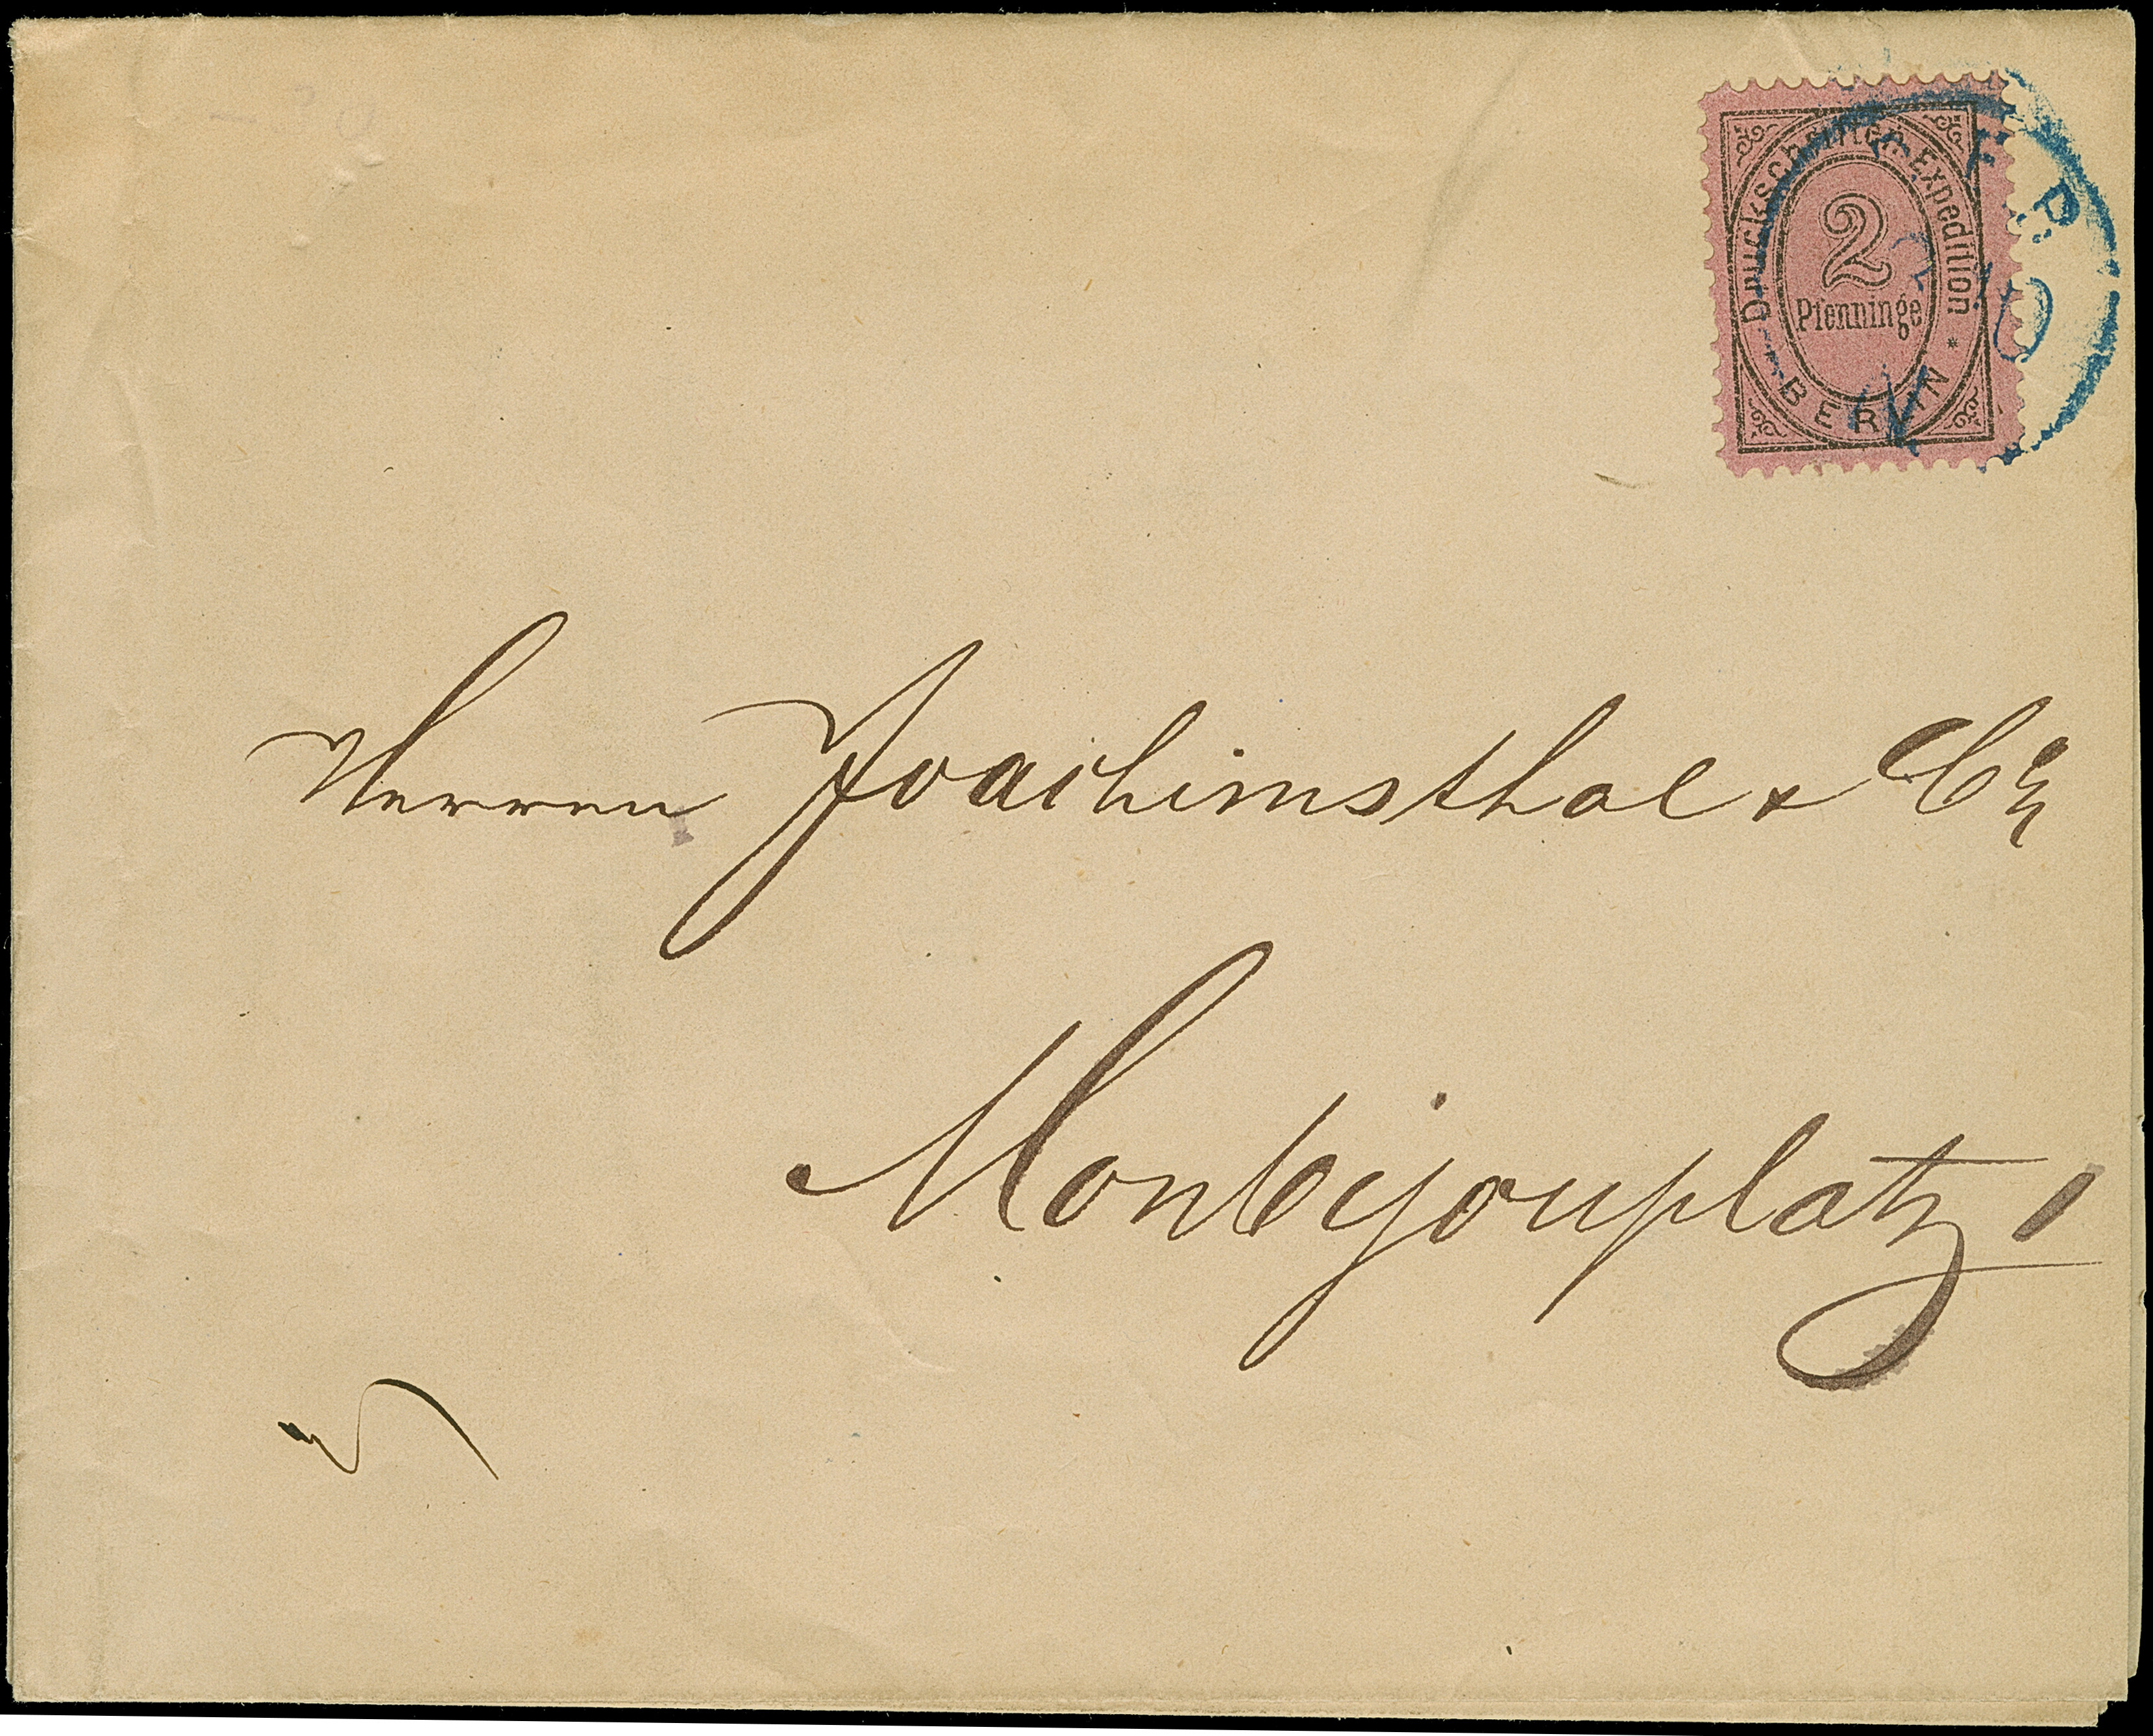 Druckschriften Expedition
2
Pfenninge
* BERLIN
Herren Joachimsthal & Co
Monbijouplatz 1